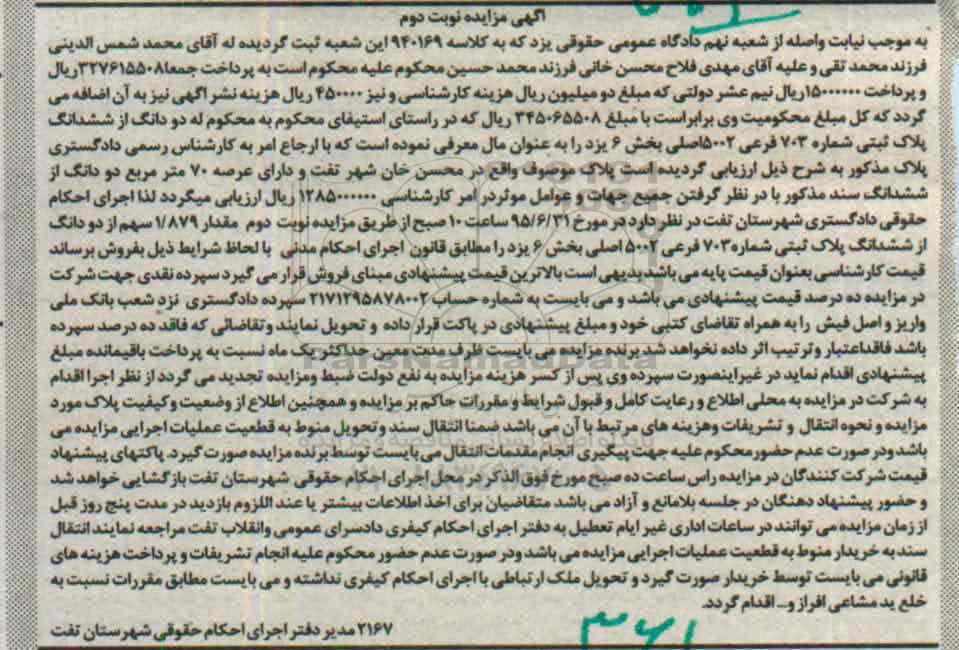 آگهی مزایده نوبت دوم
به موجب نیابت واصله از شعبه نهم دادگاه عمومی حقوقی یزد که به کلاسه ۹۴۰۱۶۹ این شعبه ثبت گردیده له آقای محمد شمس الدینی
فرزند محمد تقی و علیه آقای مهدی فلاح محسن خانی فرزند محمد حسین محکوم علیه محکوم است به پرداخت جمعا۳۲۷۶۱۵۵۰۸ریال
و پرداخت ۱۵۰۰۰۰۰۰ریال نیم عشر دولتی که مبلغ دو میلیون ریال هزینه کارشناسی و نیز ۴۵۰۰۰۰ ریال هزینه نشر آگهی نیز به آن اضافه می
گردد که کل مبلغ محکومیت وی برابراست با مبلغ ۳۴۵۰۶۵۵۰۸ ریال که در راستای استیفای محکوم به محکوم له دو دانگ از ششدانگ
پلاک ثبتی شماره ۷۰۳ فرعی ۵۰۰۲اصلی بخش ۶ یزد را به عنوان مال معرفی نموده است که با ارجاع امر به کارشناس رسمی دادگستری
پلاک مذکور به شرح ذیل ارزیابی گردیده است پلاک موصوف واقع در محسن خان شهر تفت و دارای عرصه ۷۰ متر مربع دو دانگ از
ششدانگ سند مذکور با در نظر گرفتن جمیع جهات و عوامل موثردر امر کارشناسی ۱۲۸۵۰۰۰۰۰۰ ریال ارزیابی میگردد لذا اجرای احکام
حقوقی دادگستری شهرستان تفت در نظر دارد در مورخ ۹۵/۶/۳۱ ساعت ۱۰ صبح از طریق مزایده نوبت دوم مقدار ۱/۸۷۹ سهم از دو دانگ
از ششدانگ پلاک ثبتی شماره۷۰۳ فرعی ۵۰۰۲ اصلی بخش ۶ یزد را مطابق قانون اجرای احکام مدنی با لحاظ شرایط ذیل بفروش برساند
قیمت کارشناسی بعنوان قیمت پایه می باشد بدیهی است بالاترین قیمت پیشنهادی مبنای فروش قرار می گیرد سپرده نقدی جهت شرکت
در مزایده ده درصد قیمت پیشنهادی می باشد و می بایست به شماره حساب ۲۱۷۱۲۹۵۸۷۸۰۰۲ سپرده دادگستری نزد شعب بانک ملی
واریز و اصل فیش را به همراه تقاضای کتبی خود و مبلغ پیشنهادی در پاکت قرار داده و تحویل نمایند و تقاضائی که فاقد ده درصد سپرده
باشد فاقداعتبار وترتیب اثر داده نخواهد شد برنده مزایده می بایست ظرف مدت معین حداکثر یک ماه نسبت به پرداخت باقیمانده مبلغ
پیشنهادی اقدام نماید در غیراینصورت سپرده وی پس از کسر هزینه مزایده به نفع دولت ضبط ومزایده تجدید می گردد از نظر اجرا اقدام
به شرکت در مزایده به محلی اطلاع و رعایت کامل و قبول شرایط و مقررات حاکم بر مزایده و همچنین اطلاع از وضعیت وکیفیت پلاک مورد
مزایده و نحوه انتقال و تشریفات وهزینه های مرتبط با آن می باشد ضمنا انتقال سند وتحویل منوط به قطعیت عملیات اجرایی مزایده می
باشد ودر صورت عدم حضور محکوم علیه جهت پیگیری انجام مقدمات انتقال می بایست توسط برنده مزایده صورت گیرد. پاکتهای پیشنهاد
قیمت شرکت کنندگان در مزایده راس ساعت ده صبح مورخ فوق الذکر در محل اجرای احکام حقوقی شهرستان تفت بازگشایی خواهد شد
و حضور پیشنهاد دهندگان در جلسه بلامانع و آزاد می باشد متقاضیان برای اخذ اطلاعات بیشتر یا عند اللزوم بازدید در مدت پنج روز قبل
از زمان مزایده می توانند در ساعات اداری غیر ایام تعطیل به دفتر اجرای احکام کیفری دادسرای عمومی وانقلاب تفت مراجعه نمایند انتقال
سند به خریدار منوط به قطعیت عملیات اجرایی مزایده می باشد ودر صورت عدم حضور محکوم علیه انجام تشریفات و پرداخت هزینه های
قانونی می بایست توسط خریدار صورت گیرد و تحویل ملک ارتباطی با اجرای احکام کیفری نداشته و می بایست مطابق مقررات نسبت به
خلع ید مشاعی افراز و... اقدام گردد.
۲۱۶۷ مدیر دفتر اجرای احکام حقوقی شهرستان تفت
ParsNamadData